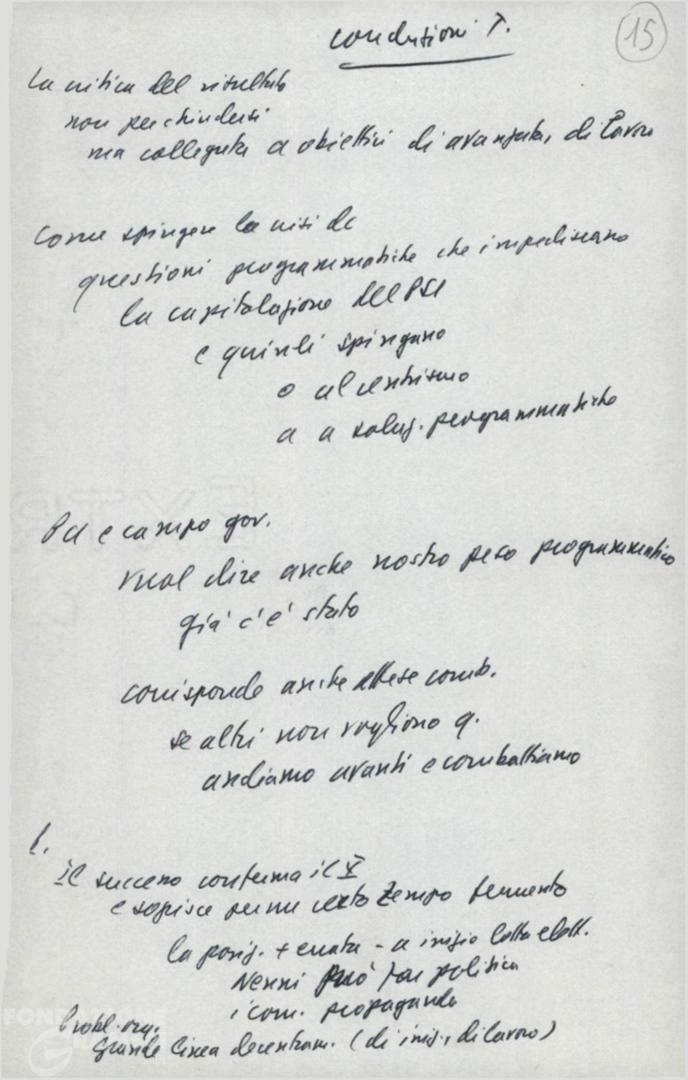 conclusioni T.
15
La critica del risultato
non per chiudersi
ma collegata a obiettivi di avanzata, di lavoro
Come spingere la crisi dc
questioni programmatiche che impediscano
la capitolazione del PSI
e quindi spingano
o al centrismo
o a soluz. programmatiche
Pci e campo gov.
vuol dire anche nostro peso programmatico
già c'è stato
corrisponde anche attese comb.
se altri non vogliono q.
andiamo avanti e combattiamo
1.
il successo conferma il X
e sopisce per un certo tempo fermento
la posiz. + errata - a inizio lotta elett.
Nenni può far politica
i com. propaganda
Probl. org.
grande linea decentram. (di iniz., di lavoro)
FONDAZIONE
G